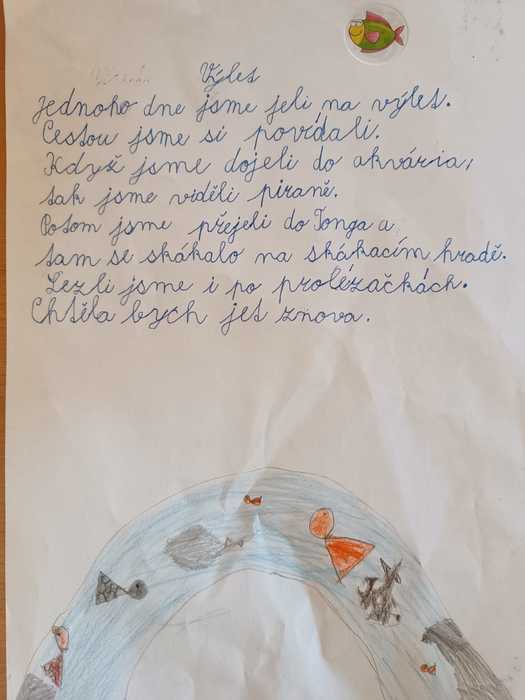 Výlet
Jednoho dne jsme jeli na výlet.
Cestou jsme si povídali.
Když jsme dojeli do akvária,
tak jsme viděli piraně.
Potom jsme přejeli do Tonga a
tam se skákalo na skákacím hradě.
Lezli jsme i po prolézačkách.
Chtěla bych jet znova.